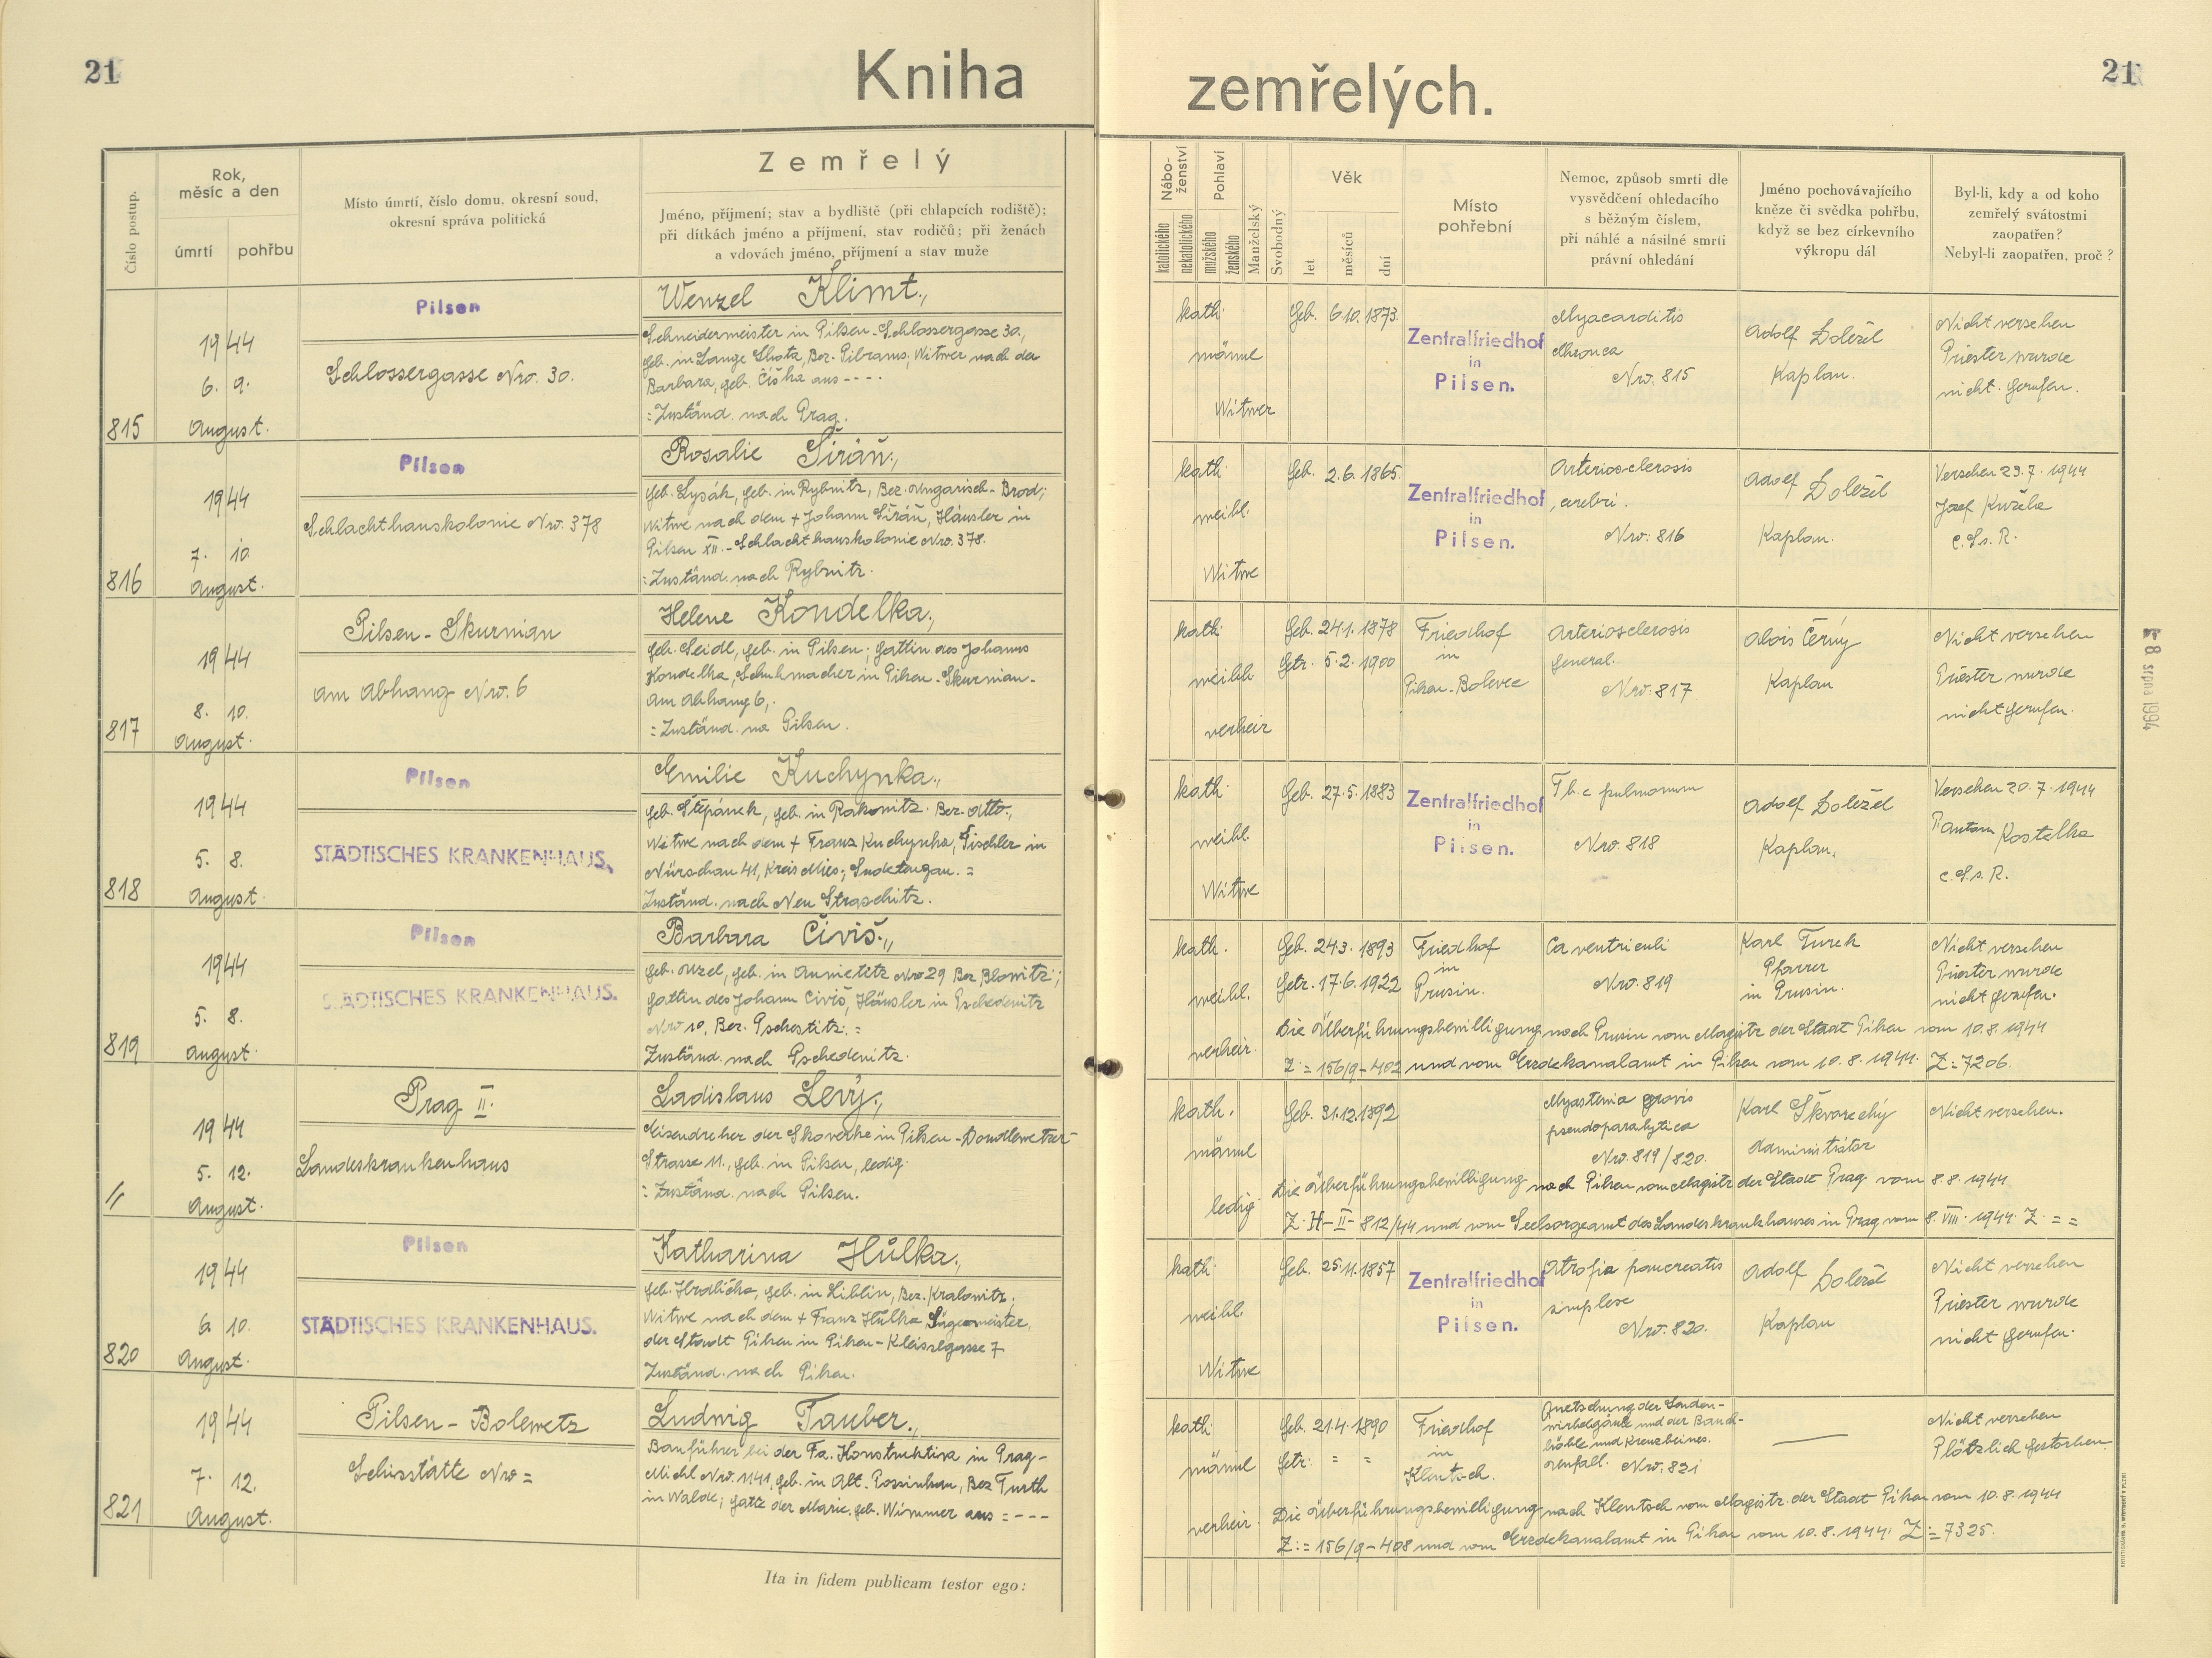 21
Kniha
zemřelých.
21
Číslo postup.
Rok,
měsíc a den
úmrtí
pohřbu
Místo úmrtí, číslo domu, okresní soud,
okresní správa politická
Zemřelý
Jméno, příjmení; stav a bydliště (při chlapcích rodiště);
při dítkách jméno a příjmení, stav rodičů; při ženách
a vdovách jméno, příjmení a stav muže
Nábo-
ženství
katolického
nekatolického
Pohlaví
mužského
ženského
Manželský
Svobodný
Věk
let
měsíců
dní
Místo
pohřební
Nemoc, způsob smrti dle
vysvědčení ohledacího
s běžným číslem,
při náhlé a násilné smrti
právní ohledání
Jméno pochovávajícího
kněze či svědka pohřbu,
když se bez církevního
výkropu dál
Byl-li, kdy a od koho
zemřelý svátostmi
zaopatřen?
Nebyl-li zaopatřen, proč?
815
1944
6. 9.
August.
Pilsen
Schlossergasse Nro. 30.
Wenzel Klimt.,
Schneidermeister in Pilsen-Schlossergasse 30.,
geb. in Lange Lhota, Bez. Pibrams, Witwer nach der
Barbara, geb. Čiška aus ----
: Zuständ. nach Prag.
kath.
männl
Witwer
Geb. 6.10. 1873.
Zentralfriedhof
in
Pilsen.
Myacarditis
chronca
Nro. 815
Adolf Doležel
Kaplan.
Nicht versehen
Priester wurde
nicht gerufen.
816
1944
7. 10.
August.
Pilsen
Schlachthauskolonie Nro. 378
Rosalie Širáň.,
geb. Lysák, geb. in Rybnitz, Bez. Ungarisch-Brod;
Witwe nach dem + Johann Širáň, Häusler in
Pilsen XII.-Schlachthauskolonie Nro. 378.
: Zuständ. nach Rybnitz.
kath.
weibl.
Witwe
Geb. 2.6. 1865.
Zentralfriedhof
in
Pilsen.
Arteriosclerosis
cerebri.
Nro. 816
Adolf Doležel
Kaplan.
Versehen 29.7.1944
Josef Kužela
C.Ss.R.
817
1944
8. 10.
August.
Pilsen-Skurnian
am Abhang Nro. 6
Helene Kondelka.,
geb. Seidl, geb. in Pilsen; Gattin des Johanns
Kondelka, Schuhmacher in Pilsen-Skurnian-
am Abhang 6,.
: Zuständ. na Pilsen.
kath.
weibl.
verheir
Geb. 24.1. 1878
Getr. 5.2. 1900
Friedhof
in
Pilsen-Bolevec
Arteriosclerosis
general.
Nro. 817
Alois Černý
Kaplan
Nicht versehen
Priester wurde
nicht gerufen.
818
1944
5. 8.
August.
Pilsen
STÄDTISCHES KRANKENHAUS,
Emilie Kuchynka.,
geb. Štěpánek, geb. in Rakonitz. Bez. dtto.,
Witwe nach dem + Franz Kuchynka, Tischler in
Nürschau 41, Kreis Mies; Sudetengau. =
Zuständ. nach Neu Straschitz.
kath.
weibl.
Witwe
Geb. 27.5. 1883
Zentralfriedhof
in
Pilsen.
Tb.c pulmonum
Nro. 818
Adolf Doležel
Kaplan.
Versehen 20.7.1944
Kostelka
C.S.s.R.
819
1944
5. 8.
August.
Pilsen
STÄDTISCHES KRANKENHAUS.
Barbara Čiviš.,
geb. Uzel, geb. in Aunietitz Nro 29 Bez Blowitz;
Gattin des Johann Čiviš, Häusler in Pschedenitz
Nro 10, Bez. Pschestitz. =
Zuständ. nach Pschedenitz.
kath.
weibl.
verheir.
Geb. 24.3. 1893
Getr. 17.6. 1922
Friedhof
in
Prusin.
Ca ventriculi
Nro. 819
Karl Turek
Pfarrer
in Prusin.
Nicht versehen
Priester wurde
nicht gerufen.
Die Überführungsbewilligung nach Prusin vom Magistr der Stadt Pilsen vom 10.8.1944
Z: = 156/9-402 und vom Erzdekanalamt in Pilsen vom 10.8.1944. Z: 7206.
//
1944
5. 12.
August.
Prag II.
Landeskrankenhaus
Ladislaus Levý.,
Eisendreher der Skoverke in Pilsen-Doudlewetzer
Strasse 11., geb. in Pilsen, ledig.
: Zuständ. nach Pilsen.
kath.
männl
ledig
Geb. 31.12.1892
Myastenia gravis
pseudoparalytica
Nro. 819/820.
Karl Škvarechý
Administrátor
Nicht versehen.
Die Überführungsbewilligung nach Pilsen vom Magistr der Stadt Prag vom 8.8.1944
Z: H-II-812/44 und vom Seelsorgeamt des Landeskrankhauses in Prag vom 8.VIII.1944. Z: = =
820
1944
6. 10.
August.
Pilsen
STÄDTISCHES KRANKENHAUS.
Katharina Hůlka.,
geb. Hrdlička, geb. in Liblin, Bez. Kralowitz;
Witwe nach dem + Franz Hůlka
der Stadt Pilsen in Pilsen-Kleisslgasse 7
Zuständ. nach Pilsen.
kath.
weibl.
Witwe
Geb. 25.11.1857
Zentralfriedhof
in
Pilsen.
Atrofia pancreatis
simplese
Nro. 820.
Adolf Doležel
Kaplan
Nicht versehen
Priester wurde
nicht gerufen.
821
1944
7. 12.
August.
Pilsen-Bolewetz
Schisstätte Nro =
Ludwig Tauber.,
Bauführer bei der Fa. Konstruktiva in Prag-
Michl Nro. 1141, geb. in Alt. Possinkau, Bez Furth
in Walde; Gatte der Marie, geb. Wimmer aus = ---
kath.
männl
verheir.
Geb. 21.4.1890
Getr: = =
Friedhof
in
Klentsch.
Quetschung der Lenden-
und der Bauch-
höhle und Kreuzbeines.
Nro. 821
Nicht versehen
Plötzlich gestorben.
Die Überführungsbewilligung nach Klentsch vom Magistr. der Stadt Pilsen vom 10.8.1944
Z: = 156/9-408 und vom Erzdekanalamt in Pilsen vom 10.8.1944. Z: = 7325.
Ita in fidem publicam testor ego:
8. srpna 1994